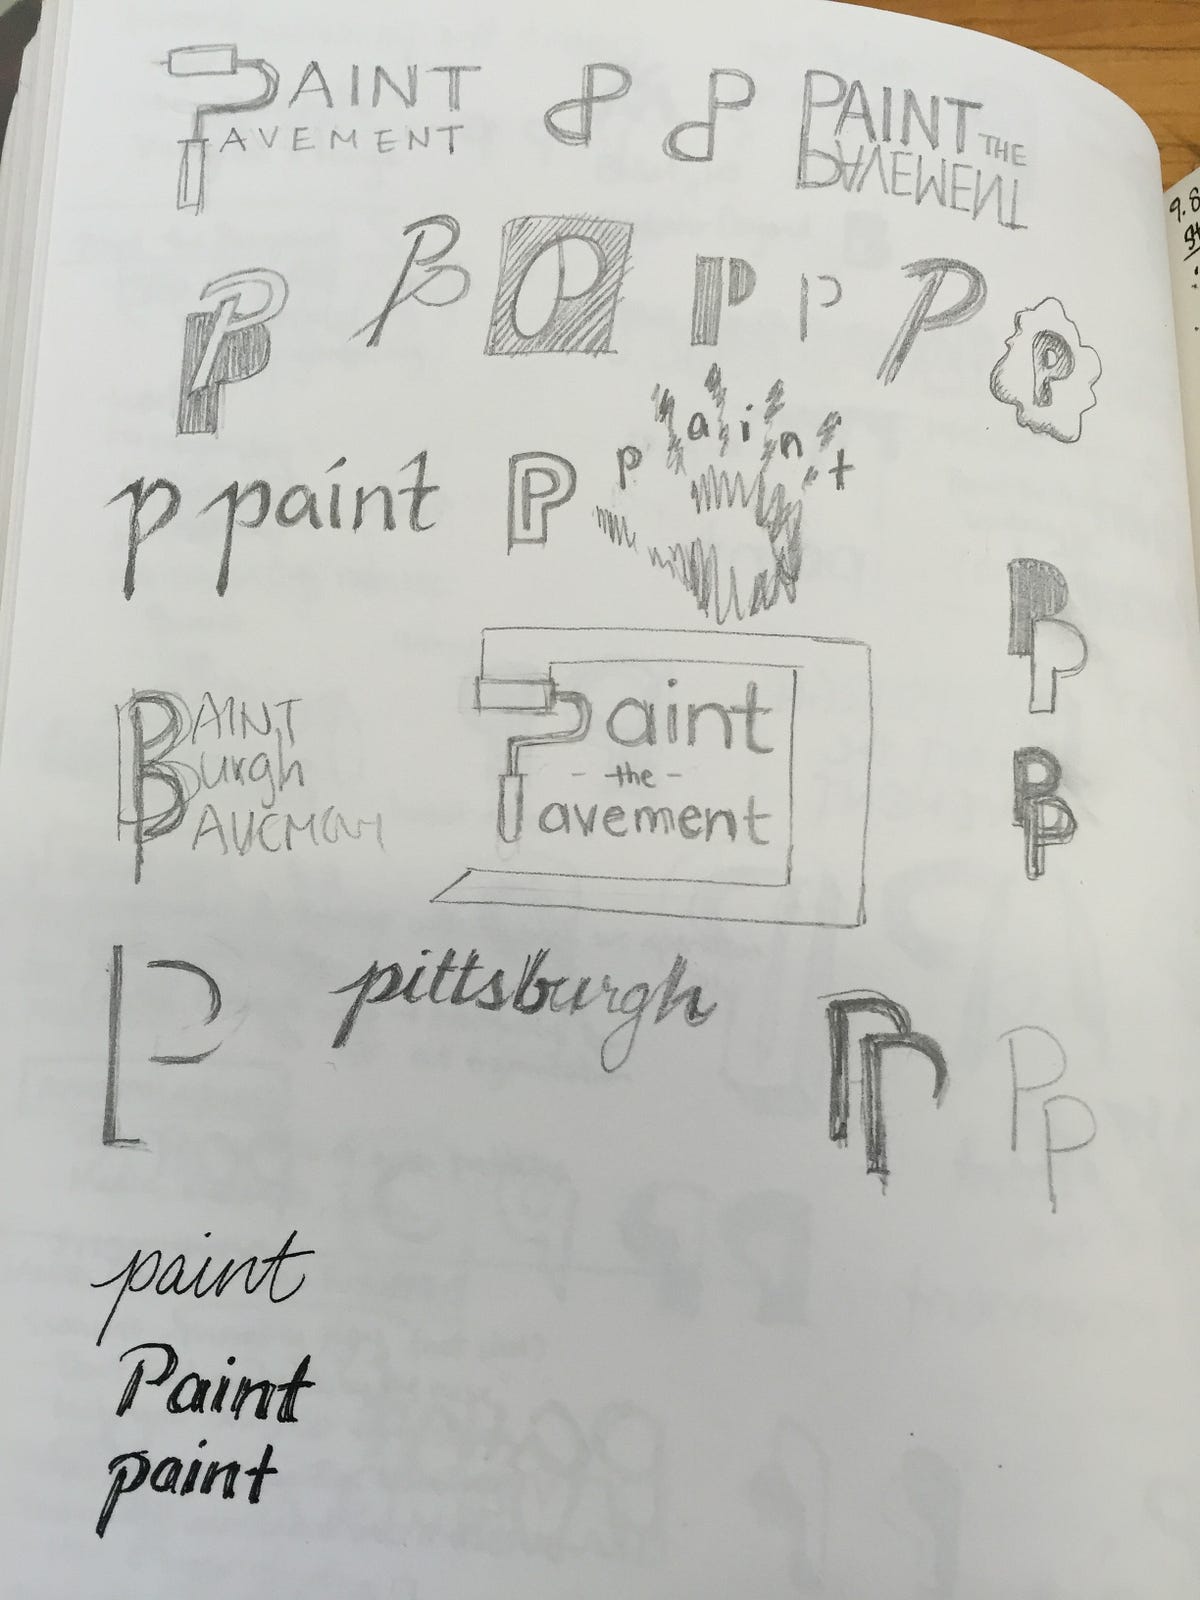 PAINT
AVEMENT
P P
PAINT THE
PAVEMENT
PP
P
P
P
P
P
P
p paint
PP
paint
PP
PAINT
Burgh
PAVEMENT
Paint
- the -
avement
PP
P
pittsburgh
PP
PP
paint
Paint
paint
9.8